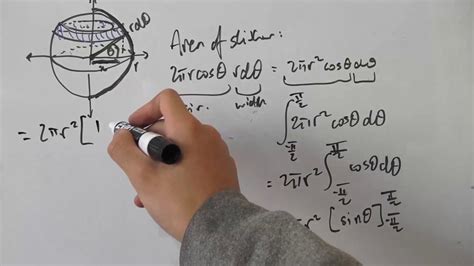 rdθ
θ
x
r
Area of slither:
2πrcosθ rdθ = 2πr² cosθdθ
cir. width
∫_{-π/2}^{π/2} 2πr² cosθ dθ
= 2πr² ∫_{-π/2}^{π/2} cosθdθ
r² [sinθ]_{-π/2}^{π/2}
= 2πr² [1